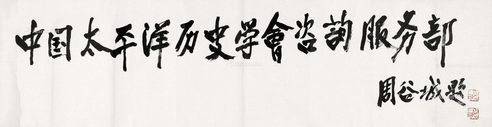 中国太平洋历史学會咨询服务部
周谷城题